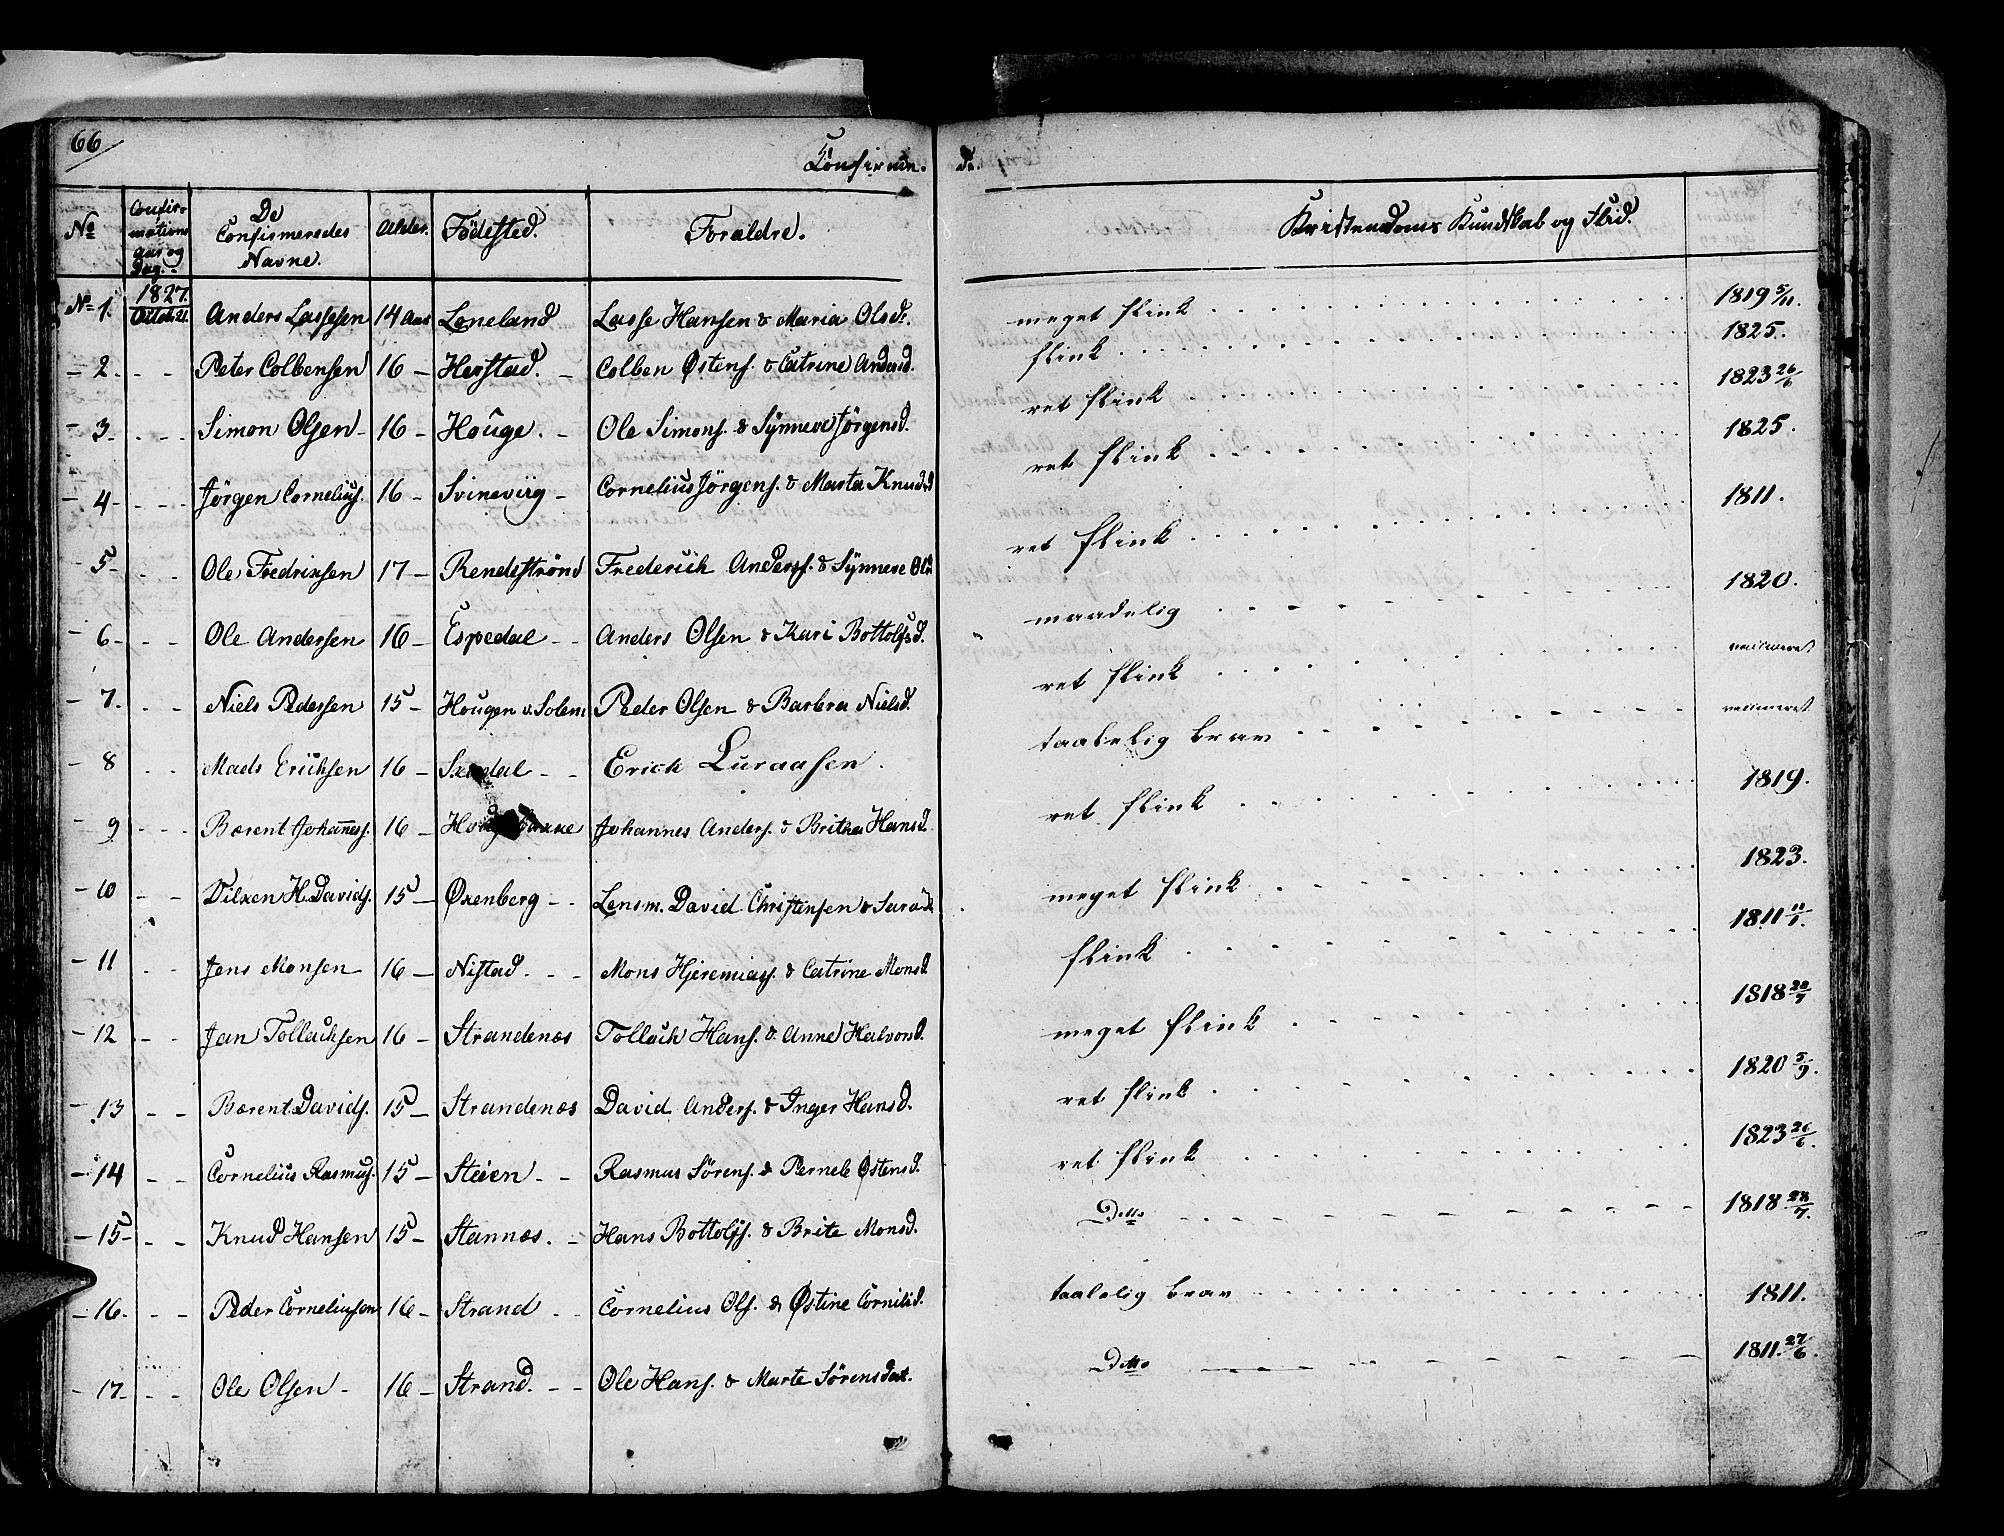 66
Confirme-
de.
No Confir-mations Aar og Dag. De Confirmeredes Navne. Alder. Födested. Forældre. Kristendoms Kundskab og Flid.
1827.
No 1. Octob. 21. Anders Lassesen 14 Aar Loneland Lasse Hansen & Maria Olsdr. meget flink 1819 5/11.
- 2. - - Peter Colbensen 16 - Herstad. - Colben Østens. & Catrine Andersd. flink 1825.
- 3. - - Simon Olsen - 16 - Houge. - Ole Simons. & Synneve Jörgensd. ret flink 1823 26/6
- 4. - - Jörgen Cornelius. 16 - Svineviig - Cornelius Jörgens. & Marta Knudsd ret flink 1825.
- 5 - - Ole Fredrixsen 17 - Rendeströnd Frederich Anders. & Synneve Olsd ret flink 1811.
- 6 - - Ole Andersen 16 - Espedal - - Anders Olsen & Kari Bottolfsd. maadelig 1820.
- 7. - - Niels Pedersen 15 - Hougen v. Solem Peder Olsen & Barbra Nielsd. ret flink vaccineret
- 8 - - Mads Erichsen 16 - - - Erich Luraasen. taalelig brav vaccineret
- 9 - - Bærent Johannes. 16 - Johannes Anders. & Brithe Hansd. ret flink 1819.
- 10 - - Dilxen H. Davids. 15 - Øxenberg - - Lensm. David Christensen & Sara meget flink 1823.
- 11 - - Jens Monsen 16 - Nistad. - - Mons Hjeremias. & Catrine Monsd flink 1811 11/1.
- 12 - - Jan Tollachsen 16 - Strandenæs Tollach Hans. & Anne Halvorsd. meget flink 1818 28/7
- 13 - - Bærent Davids. 15 - Strandenæs David Anders. & Inger Hansd. ret flink 1820 5/9.
- 14 - - Cornelius Rasmus. 15 - Steien - - Rasmus Sörens. & Pernele Østensd. ret flink 1823 26/6.
- 15 - - Knud Hansen 15 - Stannæs. - Hans Bottolfs. & Brite Monsd. Ditto 1818 28/7.
- 16. - - Peder Corneliusen 16 - Strand - - Cornelius Ols. & Østine Cornilid. taalelig brav 1811.
- 17 - - Ole Olsen - 16 - Strand. - - Ole Hans. & Marte Sörensdat. Ditto 1811. 27/6.